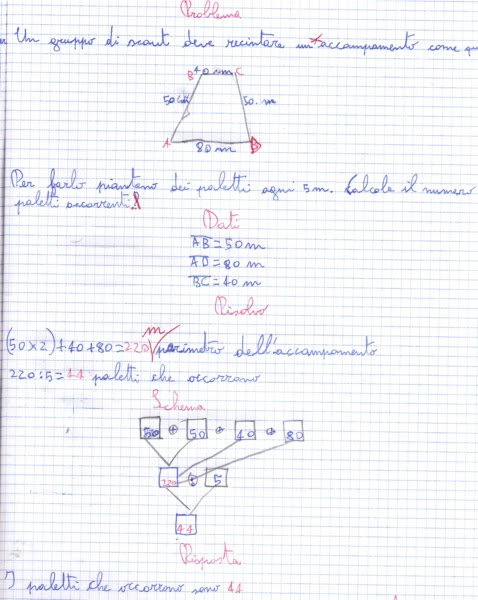 Problema
Un gruppo di scout deve recintare un accampamento come
B 40 m C
50 m 50 m
A 80 m D
Per farlo piantano dei paletti ogni 5 m. Calcola il numero
paletti occorrenti.
Dati
AB = 50 m
AD = 80 m
BC = 40 m
Risolvo
(50 x 2) + 40 + 80 = 220 m perimetro dell'accampamento
220 : 5 = 44 paletti che occorrono
Schema
50 + 50 + 40 + 80
220 : 5
44
Risposta
I paletti che occorrono sono 44